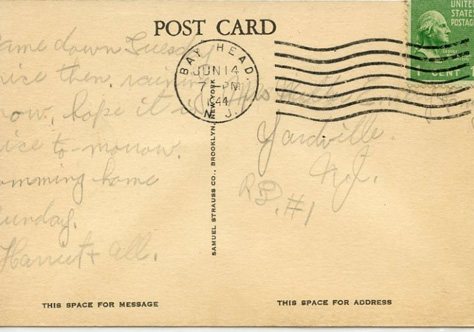 POST CARD
UNITED
STATES
POSTAG
1 CENT
BAY HEAD
JUN 14
7 - PM
1944
N. J.
ame down Tuesday
nice then, raining
now, hope it is
ice to-morrow.
omming home
unday.
Harriet + All.
Mrs
Yardville,
N.J.
R.D. #1
SAMUEL STRAUSS CO., BROOKLYN, NEW YORK
THIS SPACE FOR MESSAGE
THIS SPACE FOR ADDRESS